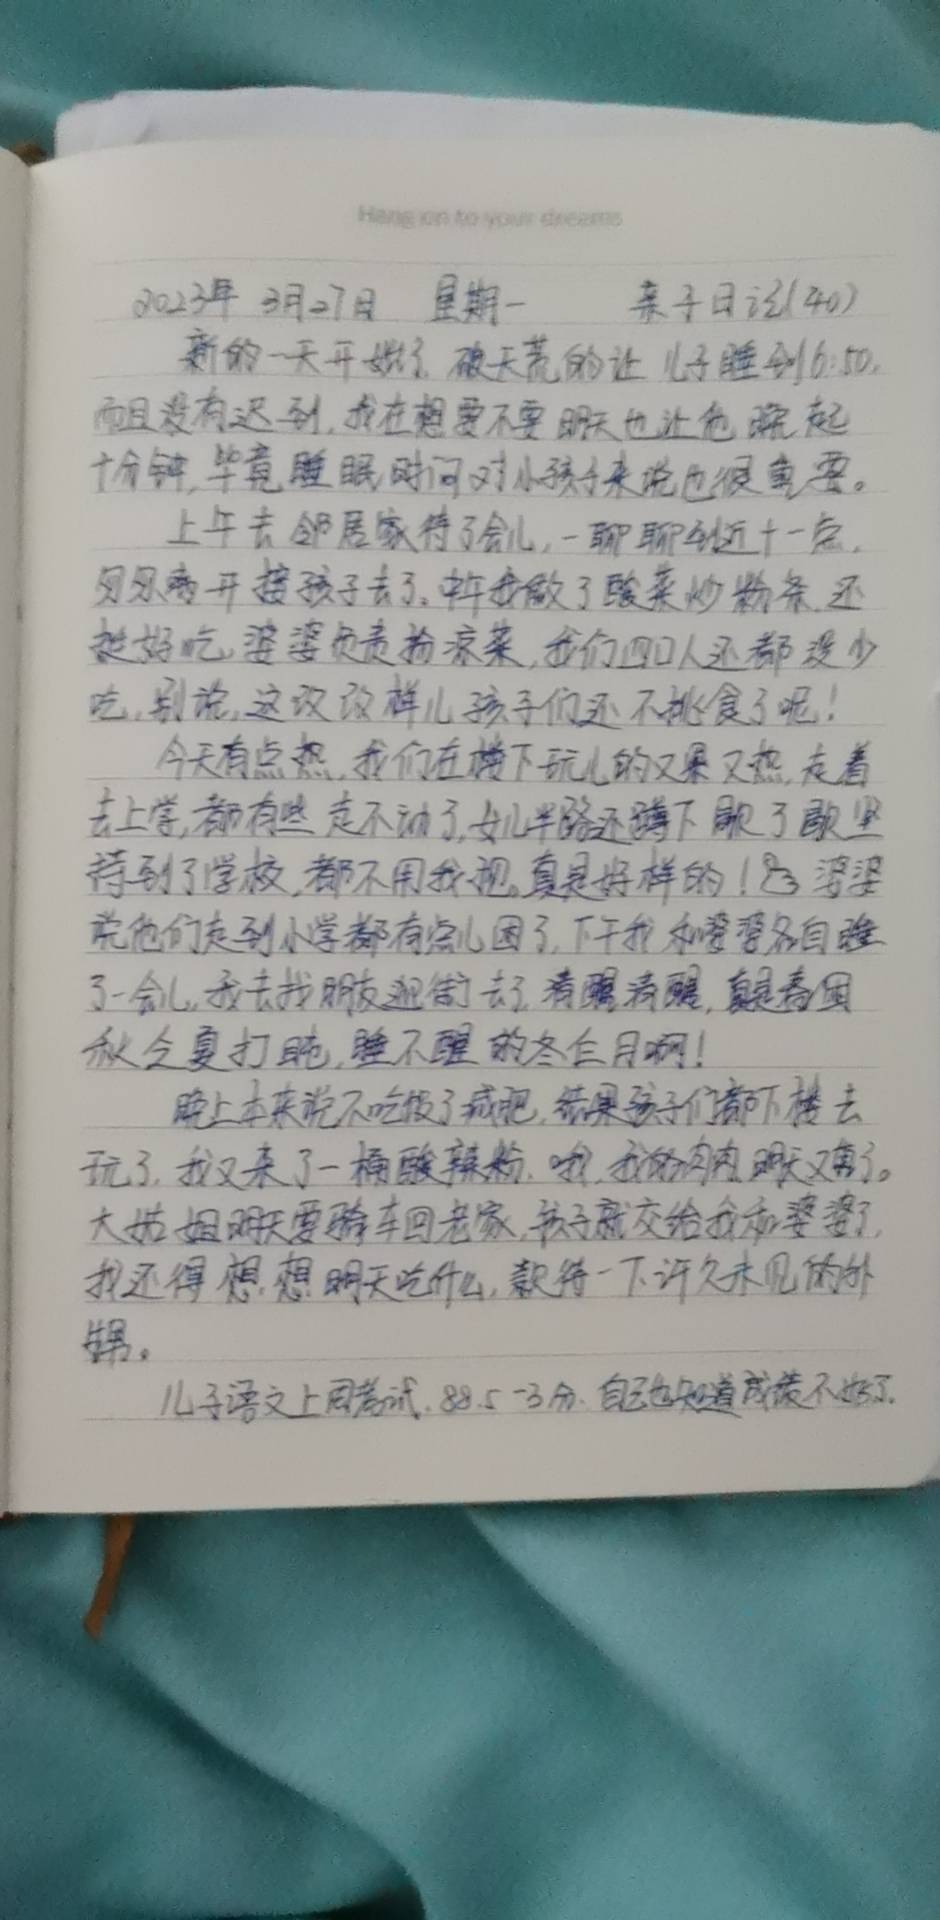 Hang on to your dreams
2023年 3月27日 星期一 亲子日记(40)
新的一天开始了,破天荒的让儿子睡到6:50,
而且没有迟到,我在想要不要明天也让他晚起
十分钟,毕竟睡眠时间对小孩子来说也很重要。
上午去邻居家待了会儿,一聊聊到近十一点,
匆匆离开接孩子去了。中午我做了酸菜炒粉条,还
挺好吃,婆婆负责拗凉菜,我们四口人还都没少
吃,别说,这改改样儿孩子们还不挑食了呢!
今天有点热,我们在楼下玩儿的又累又热,走着
去上学,都有些走不动了,女儿半路还蹲下歇了歇,坚
持到了学校,都不用我抱。真是好样的! 婆婆
说他们走到小学都有点儿困了,下午我和婆婆各自睡
了一会儿,我去找朋友逛街去了,清醒清醒,真是春困
秋乏夏打盹,睡不醒的冬仨月啊!
晚上本来说不吃饭了减肥,结果孩子们都下楼去
玩了,我又来了一桶酸辣粉,哦,我的肉肉明天又胖了。
大姑姐明天要骑车回老家,孩子就交给我和婆婆了,
我还得想想明天吃什么,款待一下许久未见的外
甥。
儿子语文上周考试,88.5-3分,自己也知道成绩不好了,